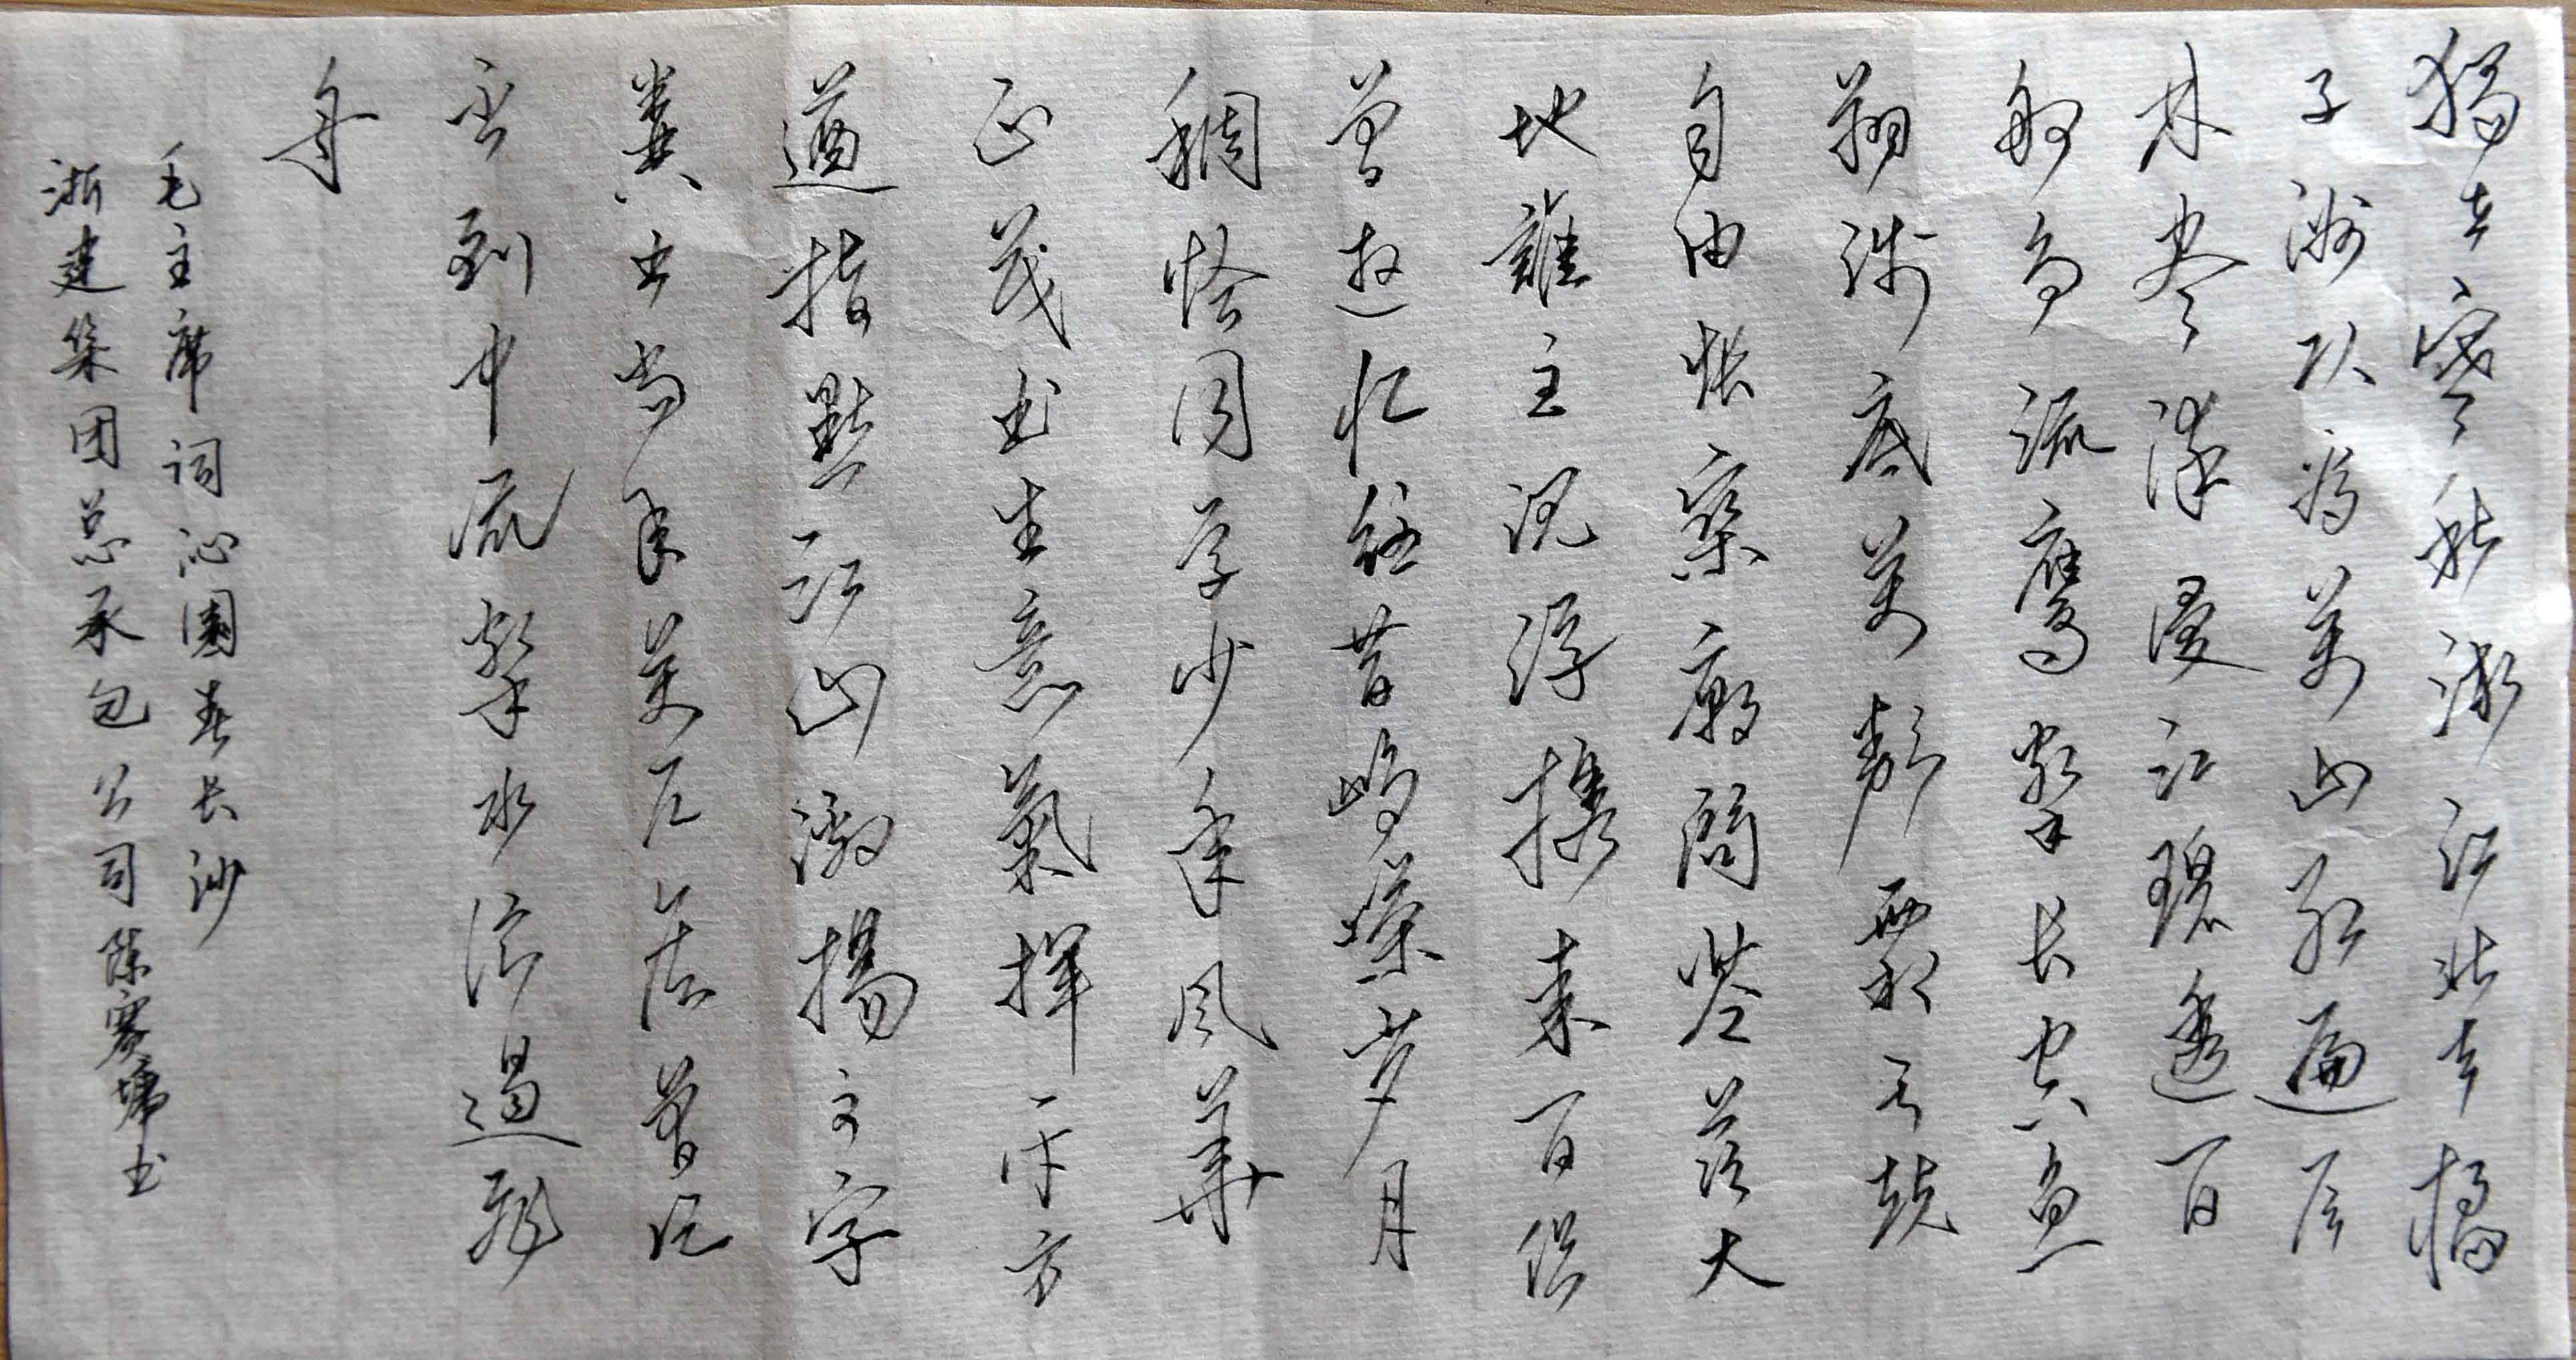 獨立寒秋湘江北去橘
子洲头看萬山紅遍层
林尽染漫江碧透百
舸争流鹰擊长空魚
翔浅底萬類霜天競
自由怅寥廓問苍茫大
地誰主沉浮携来百侣
曾遊忆往昔崢嶸岁月
稠恰同学少年风華
正茂书生意氣揮斥方
遒指點江山激揚文字
糞土当年萬户侯曾记
否到中流擊水浪遏飛
舟
毛主席词沁園春长沙
浙建集团总承包公司陈墉书